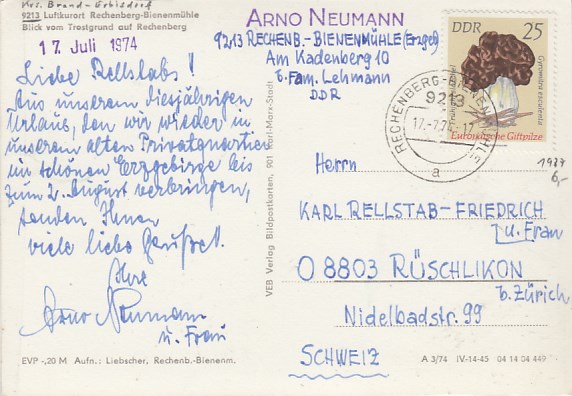 Krs. Brand-Erbisdorf
9213 Luftkurort Rechenberg-Bienenmühle
Blick vom Trostgrund auf Rechenberg
17. Juli 1974
Liebe Rellstabs!
Aus unserem diesjährigen
Urlaub, den wir wieder in
unserem alten Privatquartier
im schönen Erzgebirge bis
zum 2. August verbringen,
senden Ihnen
viele liebe Grüße!
Ihre
Arno Neumann
u. Frau
EVP -,20 M Aufn.: Liebscher, Rechenb.-Bienenm.
VEB Verlag Bildpostkarten, 901 Karl-Marx-Stadt
ARNO NEUMANN
9213 RECHENB.-BIENENMÜHLE (Erzgeb)
Am Kadenberg 10
b. Fam. Lehmann
DDR
DDR 25
Gyromitra esculenta
Europäische Giftpilze
RECHENBERG-BIENENMÜHLE
9213
17.-7.74.-17
a
1937
6,-
Herrn
KARL RELLSTAB-FRIEDRICH
u. Frau
O 8803 RÜSCHLIKON
b. Zürich
Nidelbadstr. 99
SCHWEIZ
A 3/74 IV-14-45 04 14 04 449